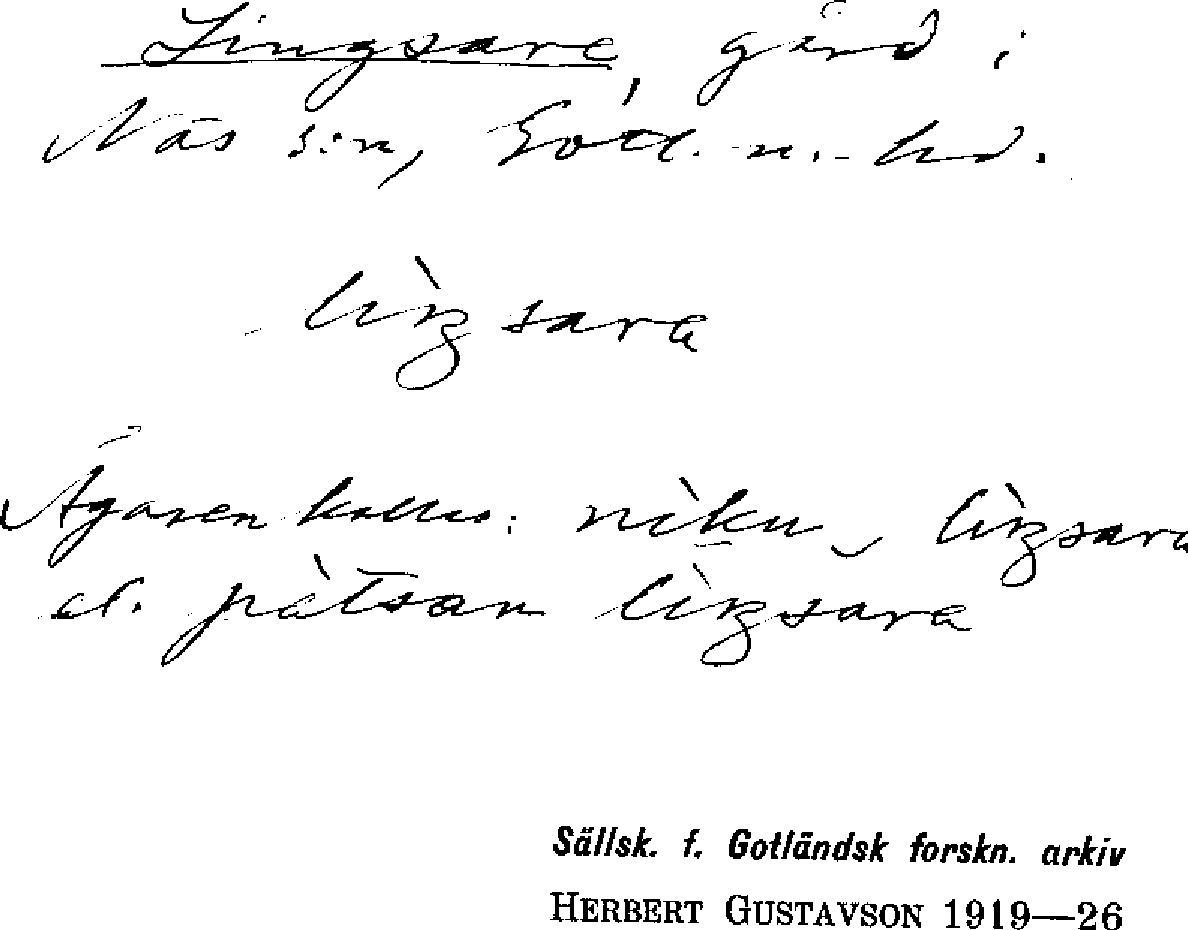 Lingsare, gård i
Näs s:n, Gotl. n. hd.
lìŋsara
Ägaren kallas: nìku lìŋsara
el. pàtsan lìŋsara
Sällsk. f. Gotländsk forskn. arkiv
HERBERT GUSTAVSON 1919—26